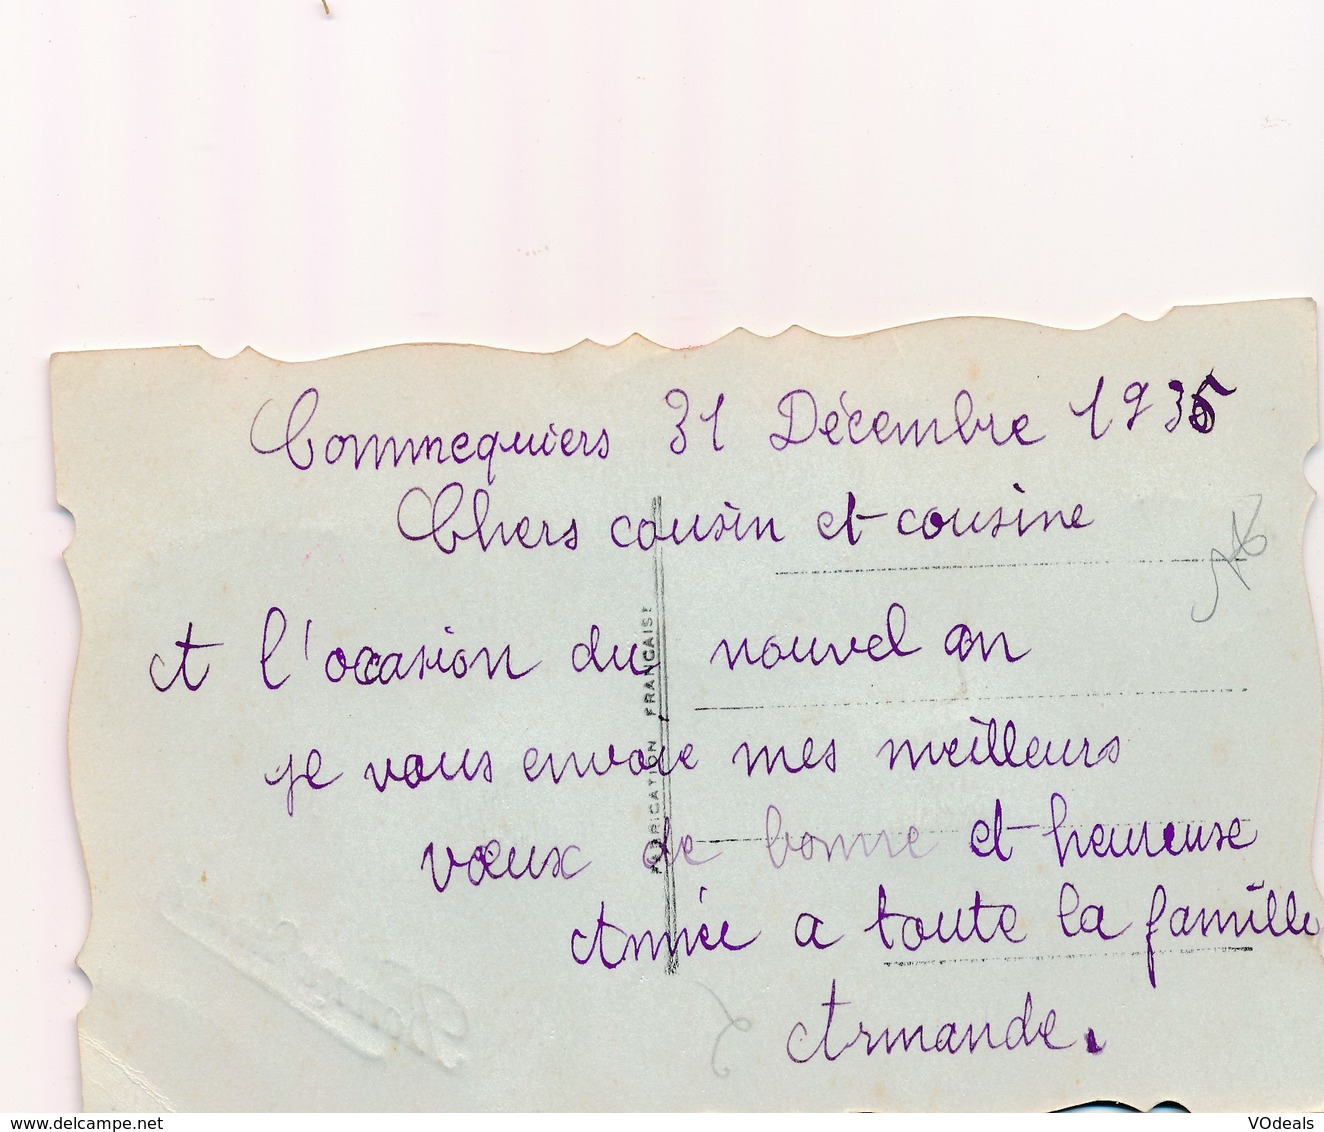 Commequiers 31 Décembre 1935
Chers cousin et cousine
A l'occasion du nouvel an
je vous envoie mes meilleurs
vœux de bonne et heureuse
Année a toute la famille
Armande.
FABRICATION FRANÇAISE
VOdeals
delcampe.net